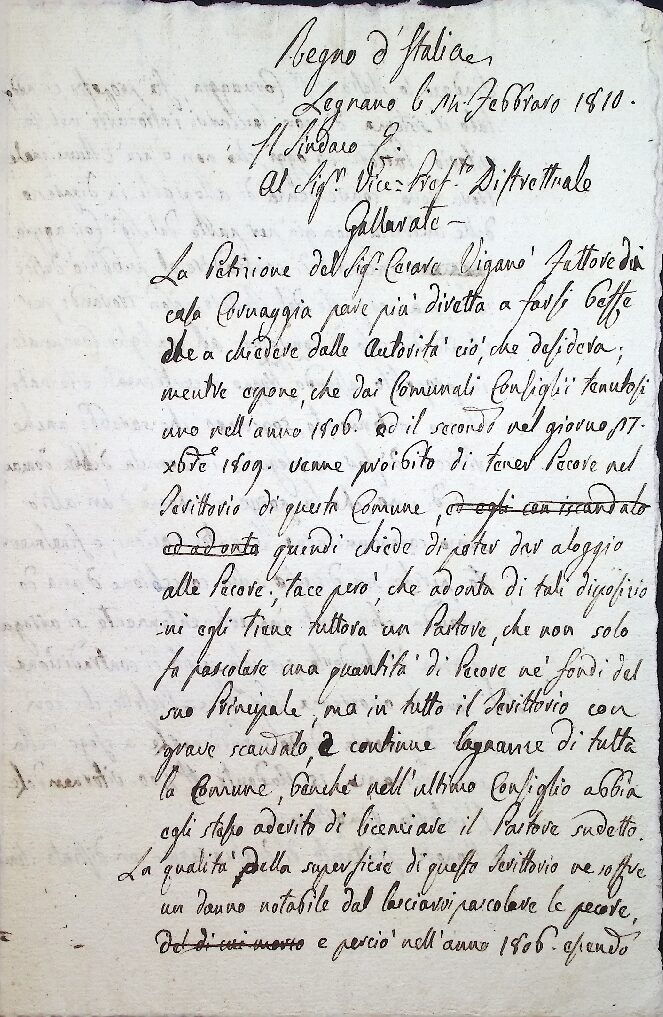 Regno d'Italia
Legnano li 14. Febbraro 1810.
Il Sindaco
Al Sigr. Vice=Prefto. Distrettuale
Gallarate
La Petizione del Sigr. Cesare Viganò Fattore di
casa Cornaggia pare più diretta a farsi beffe
che a chiedere dalle Autorità ciò, che desidera;
mentre espone, che dai Comunali Consiglj tenutosi
uno nell'anno 1806. ed il secondo nel giorno 17.
xbre 1809. venne proibito di tener Pecore nel
Territorio di questa Comune, ed egli con iscandalo
ed ad onta quendi chiede di poter dar aloggio
alle Pecore; tace però, che adonta di tali disposizio
ni egli tiene tuttora un Pastore, che non solo
fa pascolare una quantità di Pecore ne' fondi del
suo Principale, ma in tutto il Territorio con
grave scandalo, e continue lagnanze di tutta
la Comune, benche nell'ultimo Consiglio abbia
egli stesso aderito di licenziare il Pastore sudetto.
La qualità della superficie di questo Territorio ne soffre
un danno notabile dal lasciarvi pascolare le pecore,
del di cui morso e perciò nell'anno 1806. essendo